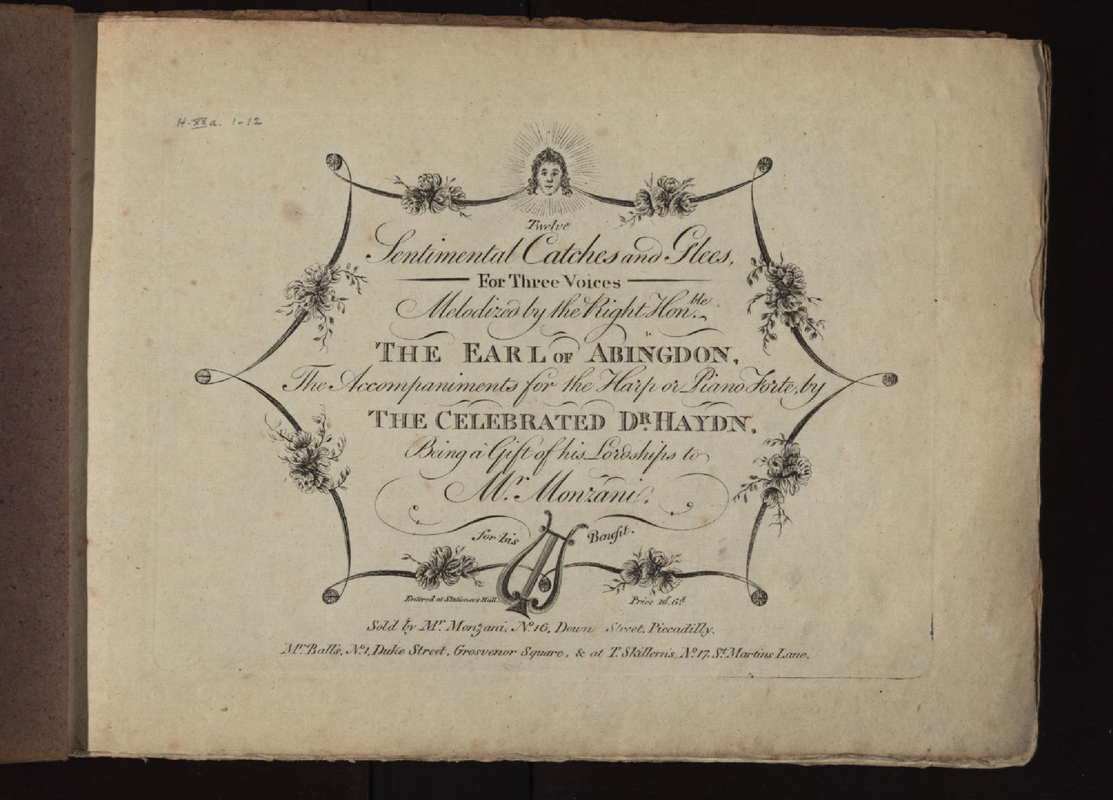 H. XXa. 1-12
Twelve
Sentimental Catches and Glees,
For Three Voices
Melodized by the Right Hon.ble
THE EARL OF ABINGDON,
The Accompaniments for the Harp or Piano Forte, by
THE CELEBRATED DR. HAYDN.
Being a Gift of his Lordships to
Mr. Monzani.
for his Benefit.
Entered at Stationers Hall. Price
Sold by Mr. Monzani, No. 16, Down Street, Piccadilly.
Mr. Ball's, No. 1, Duke Street, Grosvenor Square, & at T. Skillern's, No. 17, St. Martins Lane.